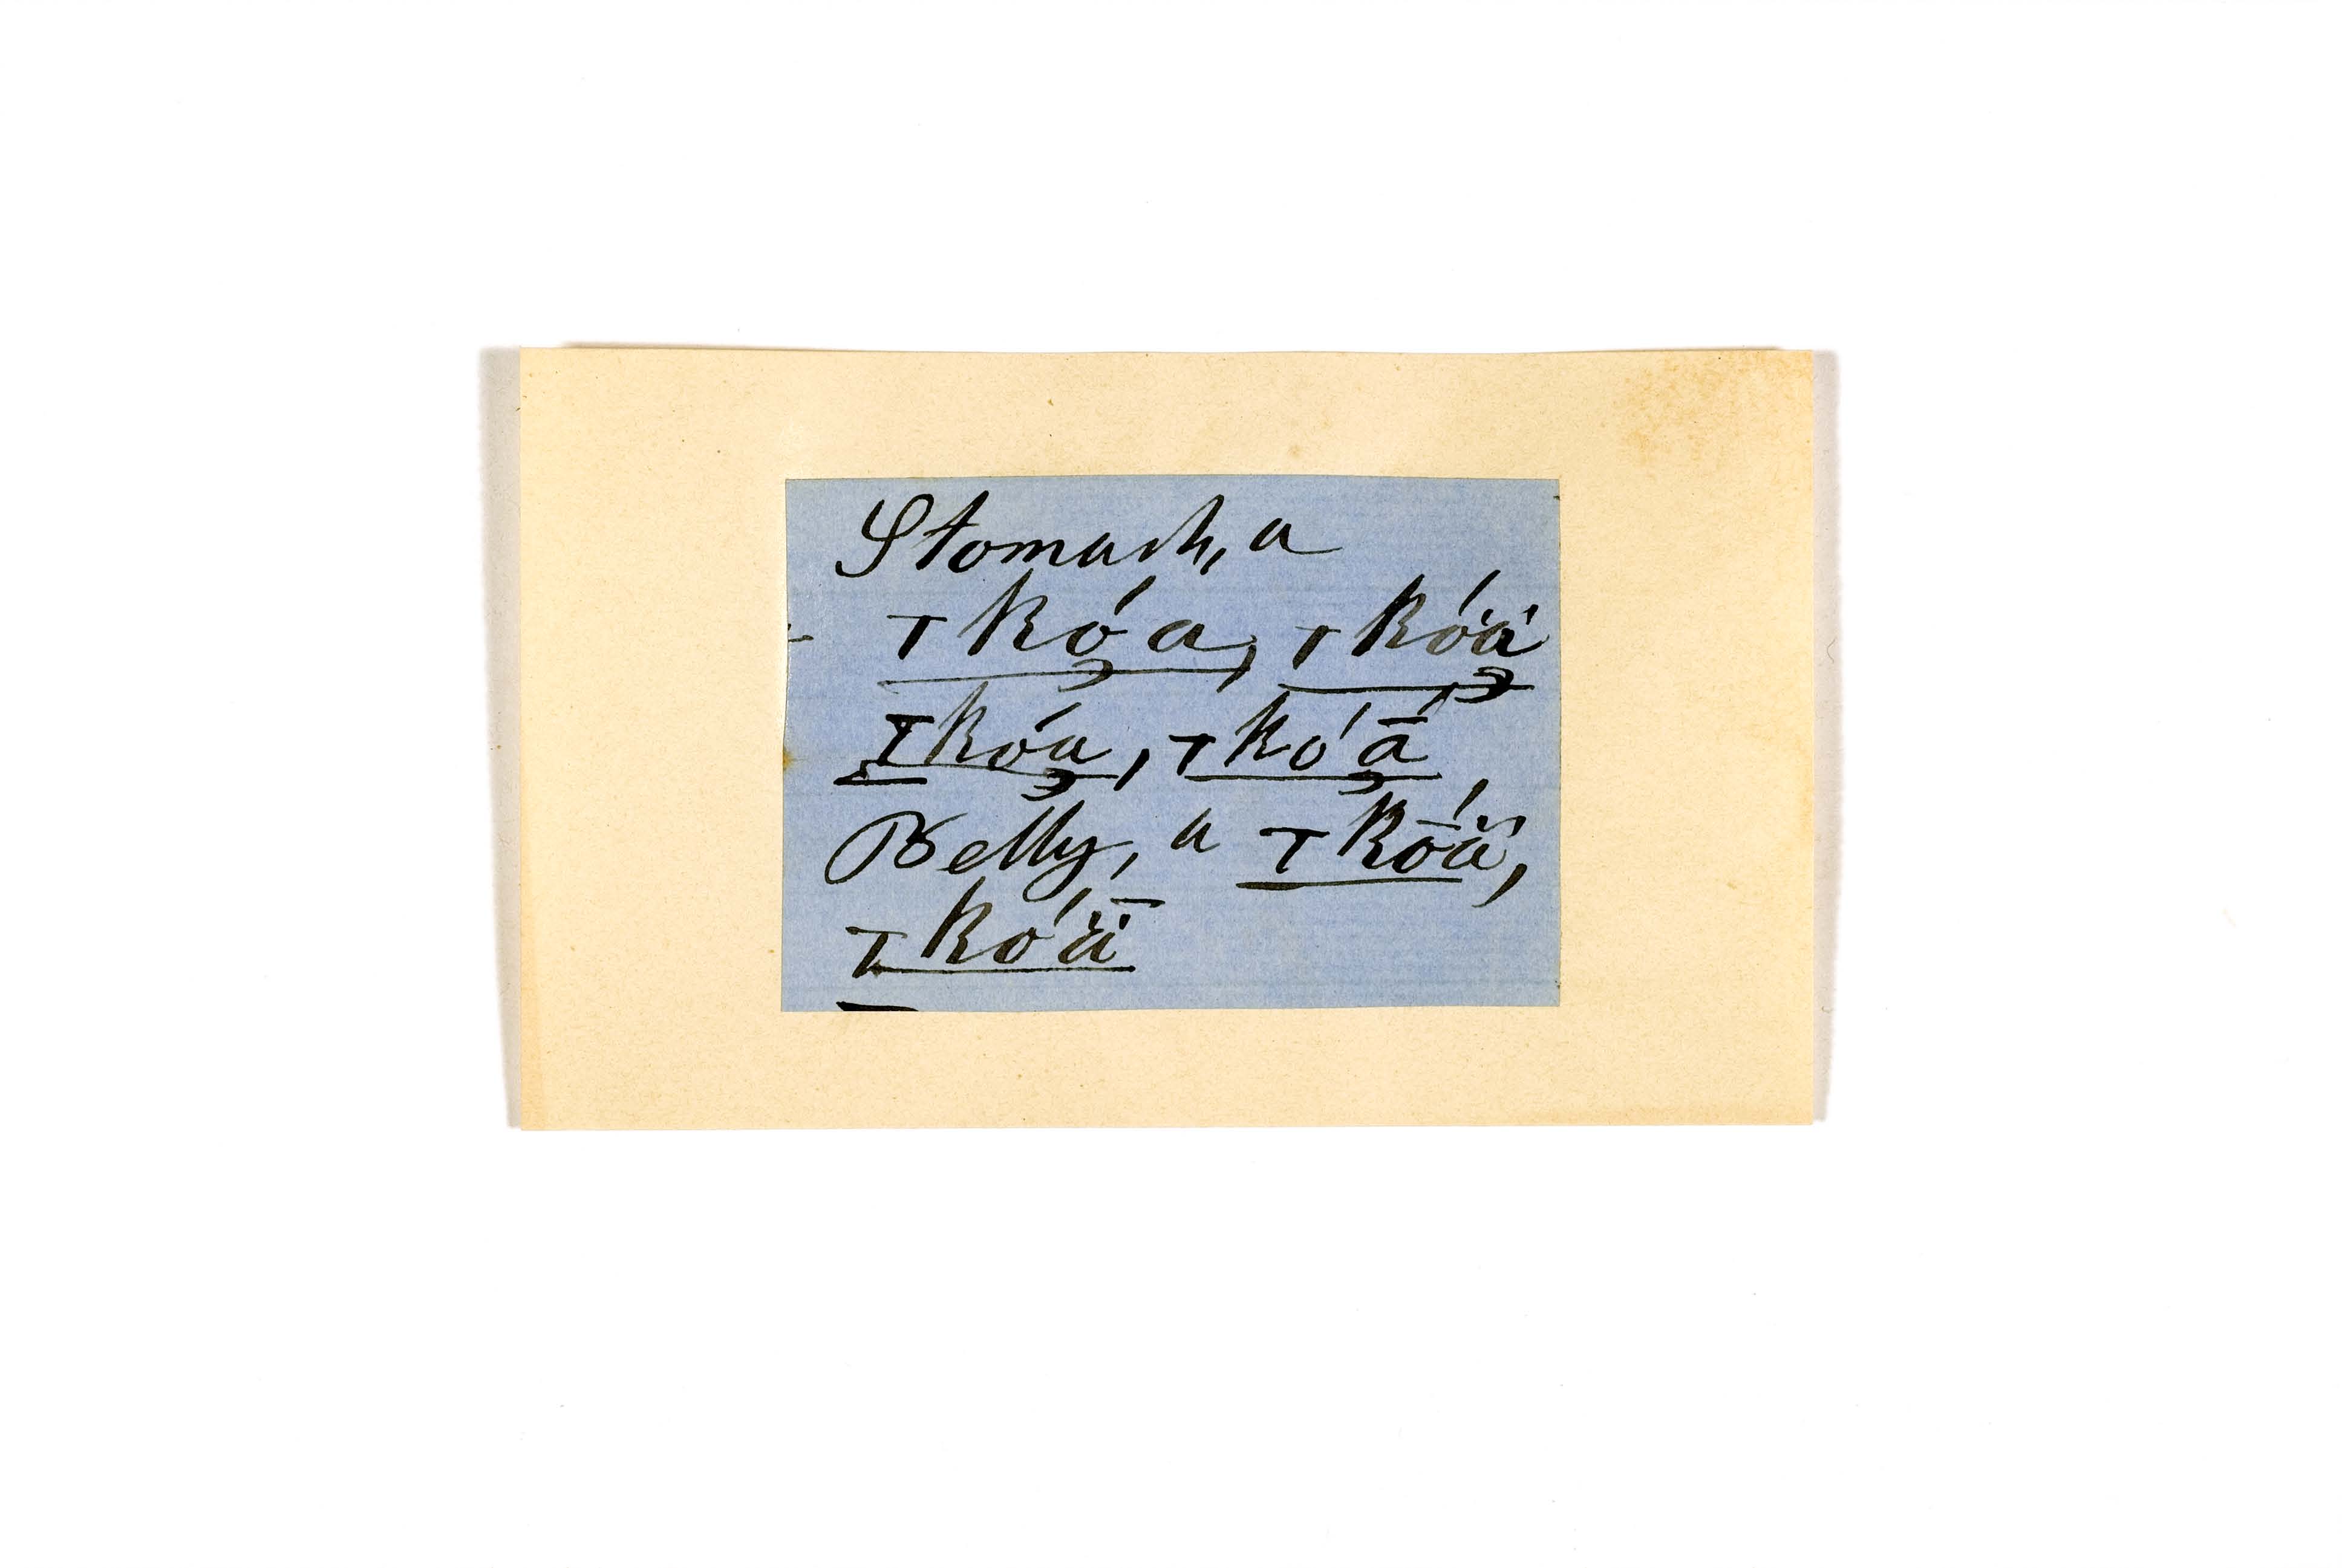 Stomach, a
⊤kó̜a, ⊤kóä̜
⊤kóa̜, ⊤kó ā̜
Belly, a ⊤kṓä,
⊤kóǟ